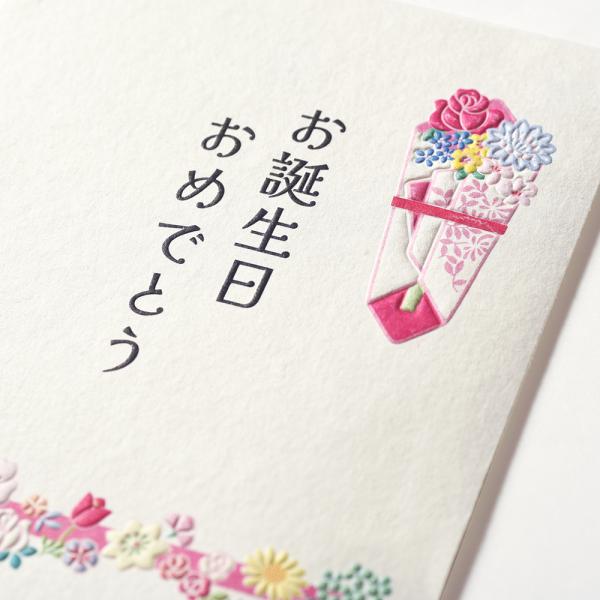 お誕生日
おめでとう